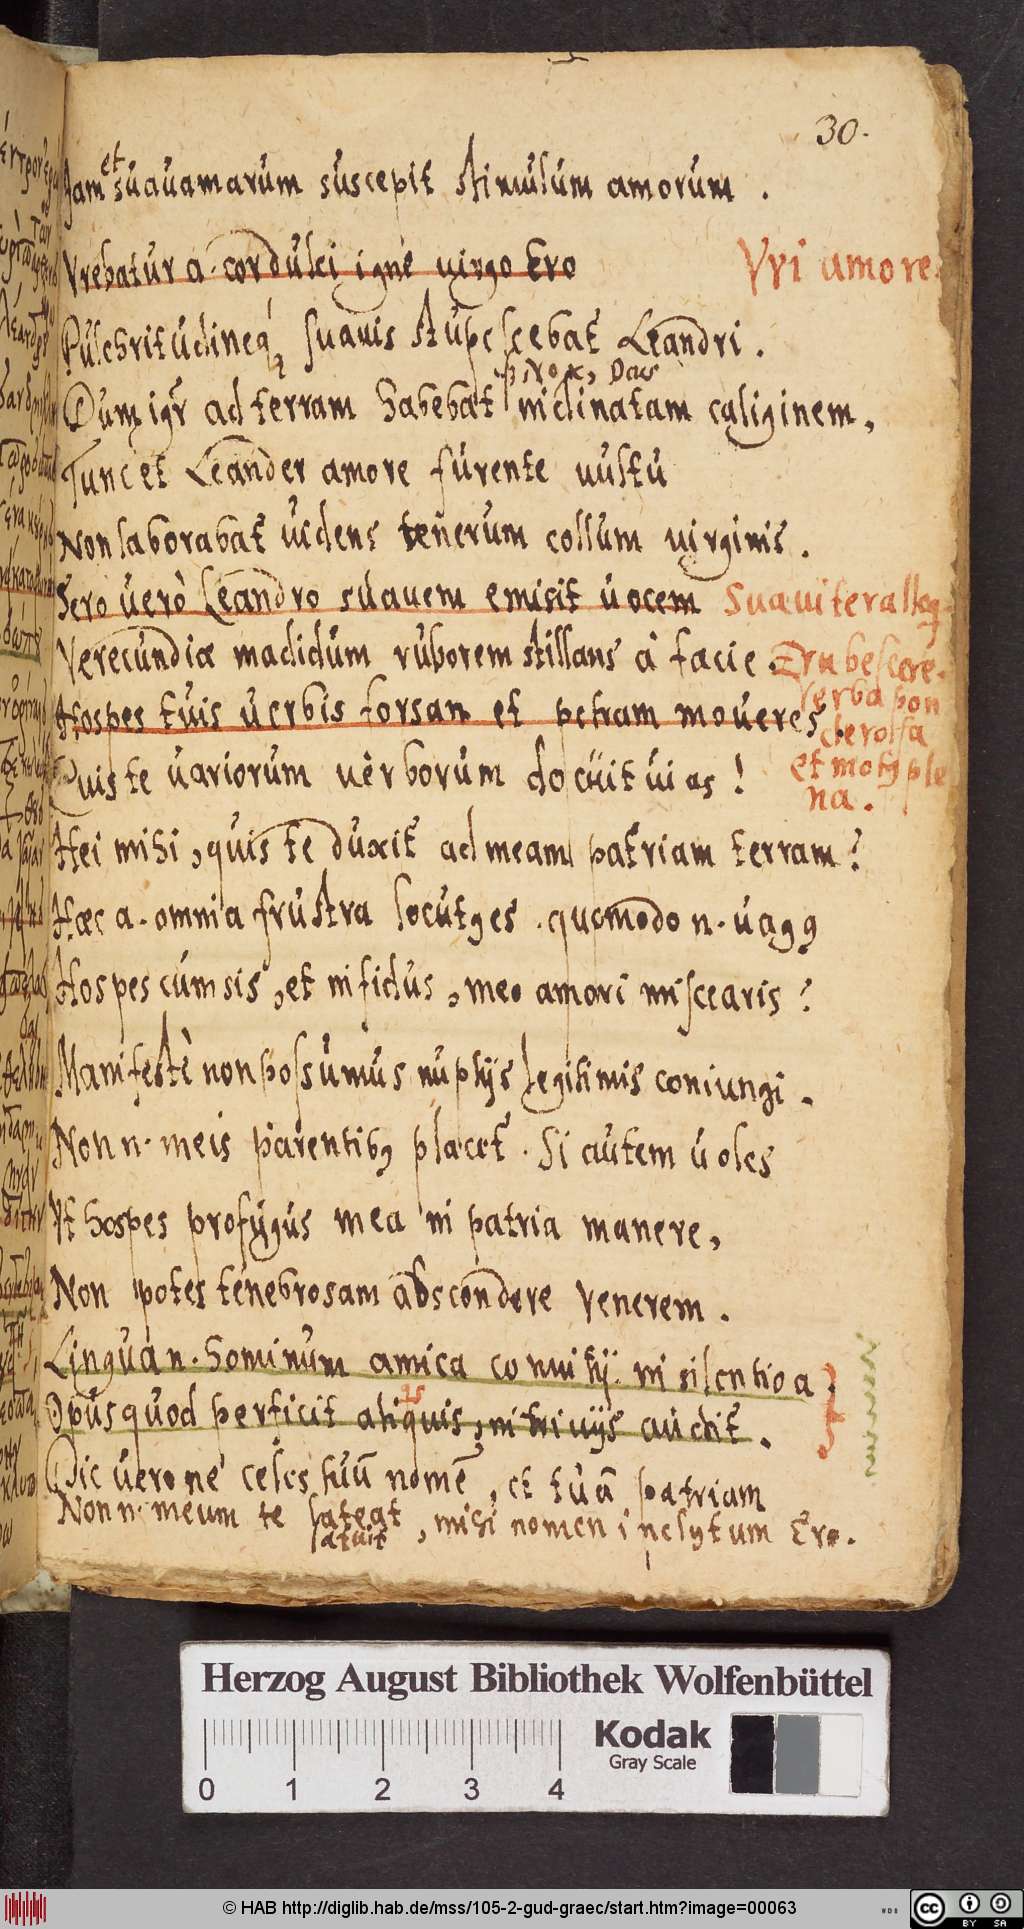 30.
Jam et suauamarum suscepit stimulum amorum .
Vrebatur a. cor dulci igne uirgo Ero
Vri amore.
Pulchritudineq; suauis stupescebat Leandri .
Dum igr ad terram habebat inclinatam caliginem,
Tunc et Leander amore furente uultu
Non laborabat uidens tenerum collum uirginis .
Sero uerò Leandro suauem emisit uocem
Suauiter alloq
Verecundiæ madidum ruborem stillans à facie .
Erubescere.
Hospes tuis uerbis forsan et petram moueres,
Verba pon
derosa
Quis te uariorum uerborum docuit uias !
et motus ple
na .
Hei mihi, quis te duxit ad meam patriam terram ?
Hæc a. omnia frustra locutus es . quomodo n. uagus
Hospes cum sis, et infidus, meo amori miscearis ?
Manifestè non possumus nuptijs legitimis coniungi .
Non n. meis parentibus placet . Si autem uoles
Vt hospes profugus mea in patria manere,
Non potes tenebrosam abscondere Venerem .
Lingua n. hominum amica conuitij . in silentio a
Opus quod perficit aliquis, in triuijs audit .
Dic uero ne celes tuū nomē, et tuā patriam
Non n. meum te lateat, mihi nomen inclytum Ero.
latuit
Herzog August Bibliothek Wolfenbüttel
Kodak
Gray Scale
0 1 2 3 4
© HAB http://diglib.hab.de/mss/105-2-gud-graec/start.htm?image=00063
cc BY SA